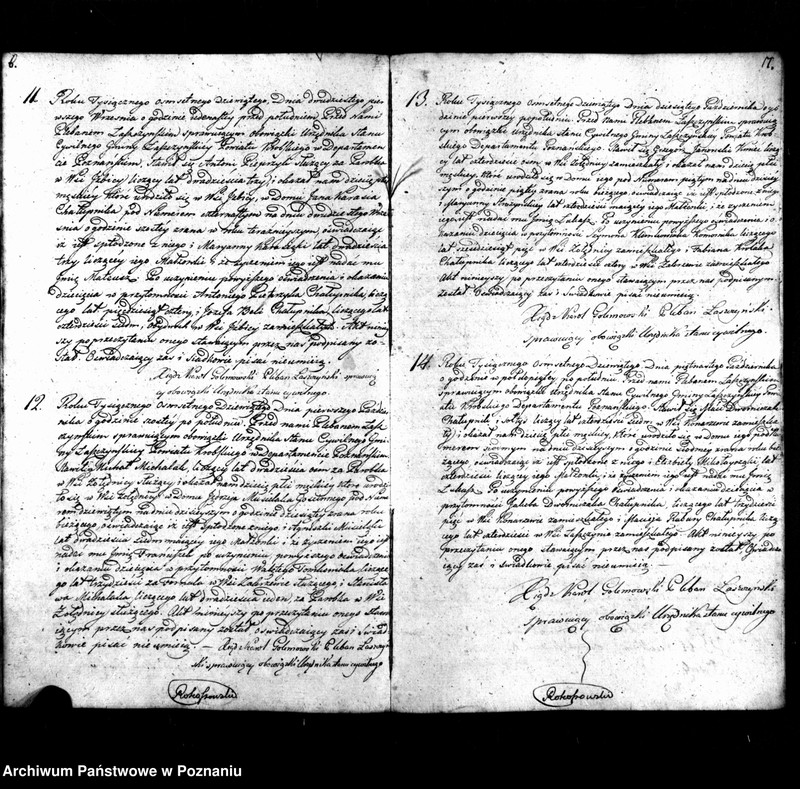 8.
11 Roku Tysiącznego osmsetnego dziewiątego, Dnia dwudziestego pier-
wszego Września o godzinie jedenastej przed południem, Przed Nami
Plebanem Łaszczyńskim sprawującym obowiązki Urzędnika Stanu
Cywilnego Gminy Łaszczyńskiej Powiatu Krobskiego w Departamen-
cie Poznańskim, Stawił się Antoni służący za Parobka
w Wsi liczący lat dwadzieścia trzy i okazał nam dziecię płci
męskiey które urodziło się w Wsi w Domu Jana
Chałupnika, pod Numerem na dniu dwudziestego Wrze-
śnia o godzinie szóstey zrana w roku teraźnieyszym, oświadczając
iż jest spłodzone z niego i Maryanny lat dwadzieścia
trzy liczącey iego Małżonki i że życzeniem iego iest nadać mu
Imię Mateusz. Po uczynieniu powyższego oświadczenia i okazaniu
dziecięcia w przytomności Antoniego Chałupnika, liczą-
cego lat pięćdziesiąt cztery, i Józefa Chałupnika, liczącego lat
czterdzieści siedm, w Wsi zamieszkałych. Akt niniey-
szy po przeczytaniu onego stawającym przez nas podpisany zo-
stał. Oświadczający zaś i Świadkowie pisać nieumieią.
Xiądz Karol Golimowski Pleban Łaszczyński sprawują-
cy obowiązki Urzędnika stanu cywilnego.
12. Roku Tysiącznego osmsetnego dziewiątego, Dnia pierwszego Paździer-
nika o godzinie szóstey po południu, Przed nami Plebanem Łasz-
czyńskim sprawującym obowiązki Urzędnika Stanu Cywilnego Gmi-
ny Łaszczyńskiej Powiatu Krobskiego w departamencie Poznańskim
Stawił się Jakub Michalak, liczący lat dwadzieścia osm za Parobka
w Wsi Zołędnicy służący i okazał nam dziecię płci męskiey które urodzi-
ło się w Wsi Zołędnicy w domu Jędrzeja pod Nume-
rem dziewiętym na dniu dzisieyszym o godzinie dziesiątey zrana roku
bieżącego oświadczając iż iest spłodzone z niego i Agnieszki
lat dwadzieścia siedm maiącey iego Małżonki, i że życzeniem iego iest
nadać mu Imię Franciszek po uczynieniu powyższego oświadczenia
i okazaniu dziecięcia w przytomności liczące-
go lat trzydzieści za Fornala w Wsi służącego, i Stanisła-
wa Michalaka liczącego lat dwadzieścia ieden, za Parobka w Wsi
Zołędnicy służącego. Akt ninieyszy po przeczytaniu onego stawa-
iącym przez nas podpisany został, oświadczający zaś i Świad-
kowie pisać nieumieią. — Xiądz Karol Golimowski Pleban Łaszczyń-
ski sprawujący obowiązki Urzędnika stanu cywilnego
Rokossowski
17.
13. Roku Tysiącznego osmsetnego dziewiątego Dnia dziesiątego Października o go-
dzinie pierwszej popołudniu. Przed Nami Plebanem Łaszczyńskim, sprawują-
cym obowiązki Urzędnika Stanu Cywilnego Gminy Łaszczyńskiej Powiatu Krob-
skiego Departamentu Poznańskiego. Stawił się Grzegorz liczą-
cy lat czterdzieści osm, w Wsi Zołędnicy zamieszkały i okazał nam dziecię płci
męzkiey, które urodziło się w domu iego pod Numerem piątym na dniu dzisiey-
szym o godzinie piątey zrana roku bieżącego oświadczając iż iest spłodzone z niego
i Maryanny lat czterdzieści maiącey iego Małżonki, i że życzeniem
iego iest nadać mu Imię Łukasz. Po uczynieniu powyższego oświadczenia i o-
kazaniu dziecięcia w przytomności Szymona Komornika liczącego
lat sześćdziesiąt pięć w Wsi Zołędnicy zamieszkałego i Fabiana
Chałupnika, liczącego lat czterdzieści cztery w Wsi zamieszkałego
Akt ninieyszy po przeczytaniu onego stawającym przez nas podpisanym
został Oświadczający zaś i świadkowie pisać nieumieią. —
Xiądz Karol Golimowski Pleban Łaszczyński
sprawujący obowiązki Urzędnika stanu cywilnego.
14. Roku Tysiącznego osmsetnego Dziewiątego, Dnia piętnastego Października
o godzinie w pół do piątey po południu. Przed nami Plebanem Łaszczyńskim
sprawującym obowiązki Urzędnika Stanu Cywilnego Gminy Łaszczyńskiej Powi-
atu Krobskiego Departamentu Poznańskiego. Stawił się Maciej Dworniczak
Chałupnik, liczący lat czterdzieści siedm w Wsi Konarzewie zamieszka-
ły i okazał nam dziecię płci męzkiey, które urodziło się w domu iego pod Nu-
merem siódmym na dniu dzisieyszym o godzinie siódmey zrana roku bie-
żącego, oświadczając iż iest spłodzone z niego i Elżbiety lat
czterdzieści liczącey iego Małżonki, i że życzeniem iego iest nadać mu Imię
Łukasz. Po uczynieniu powyższego oświadczenia i okazaniu dziecięcia w
przytomności Jakuba Dworniczaka Chałupnika, liczącego lat trzydzieści
pięć w Wsi Konarzewie zamieszkałego i Macieja Chałupnika liczą-
cego lat czterdzieści w Wsi Łaszczynie zamieszkałego. Akt ninieyszy po
przeczytaniu onego stawającym, przez nas podpisany został, Oświadcza-
iący zaś i świadkowie pisać nieumieią —
Xiądz Karol Golimowski Pleban Łaszczyński
sprawujący obowiązki Urzędnika stanu cywilnego
Rokossowski
Archiwum Państwowe w Poznaniu